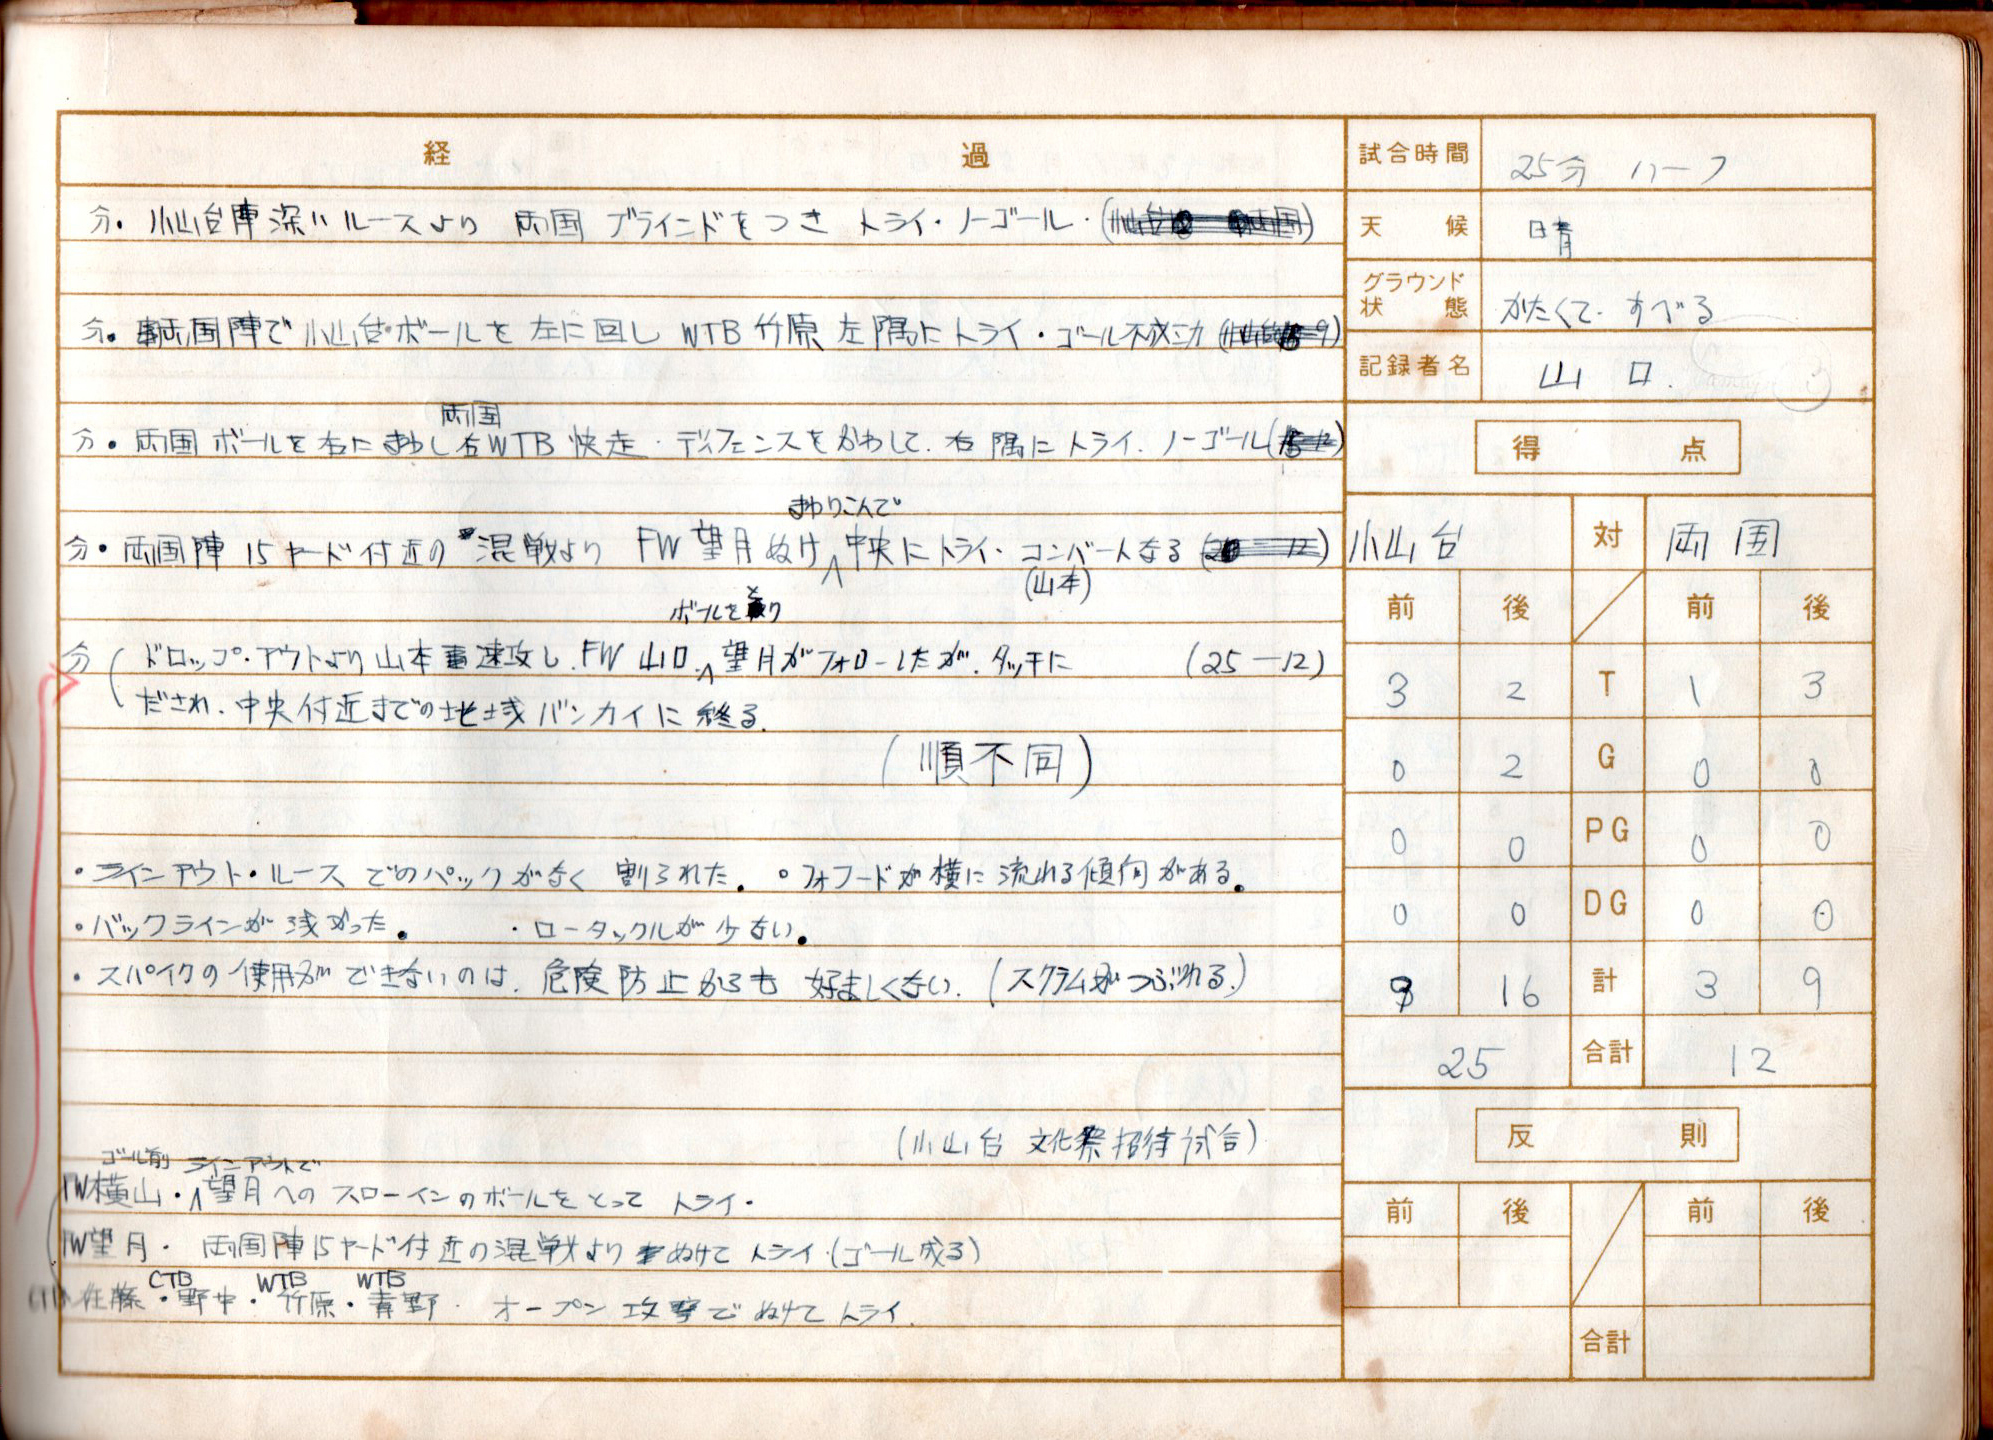 経 過
分. 小山台陣深いルースより 両国 ブラインドをつき トライ・ノーゴール・
分. 両国陣で 小山台ボールを 左に回し WTB 竹原 左隅にトライ・ゴール不成功
両国
分. 両国ボールを右にまわし右WTB 快走・ディフェンスをかわして. 右隅にトライ. ノーゴール
まわりこんで
分. 両国陣 15ヤード付近の 混戦より FW 望月ぬけ 中央にトライ・コンバートなる
(山本)
ボールを
分 ドロップ・アウトより山本 速攻し. FW 山口. 望月がフォローしたが. タッチに (25-12)
だされ. 中央付近までの地域バンカイに終る.
(順不同)
・ラインアウト・ルースでのパックがなく 割られた. ・フォワードが横に流れる傾向がある.
・バックラインが浅かった. ・ロータックルが少ない.
・スパイクの使用ができないのは. 危険防止からも 好ましくない. (スクラムがつぶれる.)
(小山台 文化祭招待試合)
ゴール前 ラインアウトで
FW横山・望月へのスローインのボールをとって トライ.
FW望月・両国陣15ヤード付近の混戦より ぬけて トライ (ゴール成る)
CTB WTB WTB
佐藤・野中・竹原・青野. オープン攻撃でぬけてトライ.
試合時間 25分 ハーフ
天候 晴
グラウンド
状態 かたくて. すべる
記録者名 山口.
得点
小山台 対 両国
前 後 前 後
3 2 T 1 3
0 2 G 0 0
0 0 PG 0 0
0 0 DG 0 0
9 16 計 3 9
25 合計 12
反則
前 後 前 後
合計